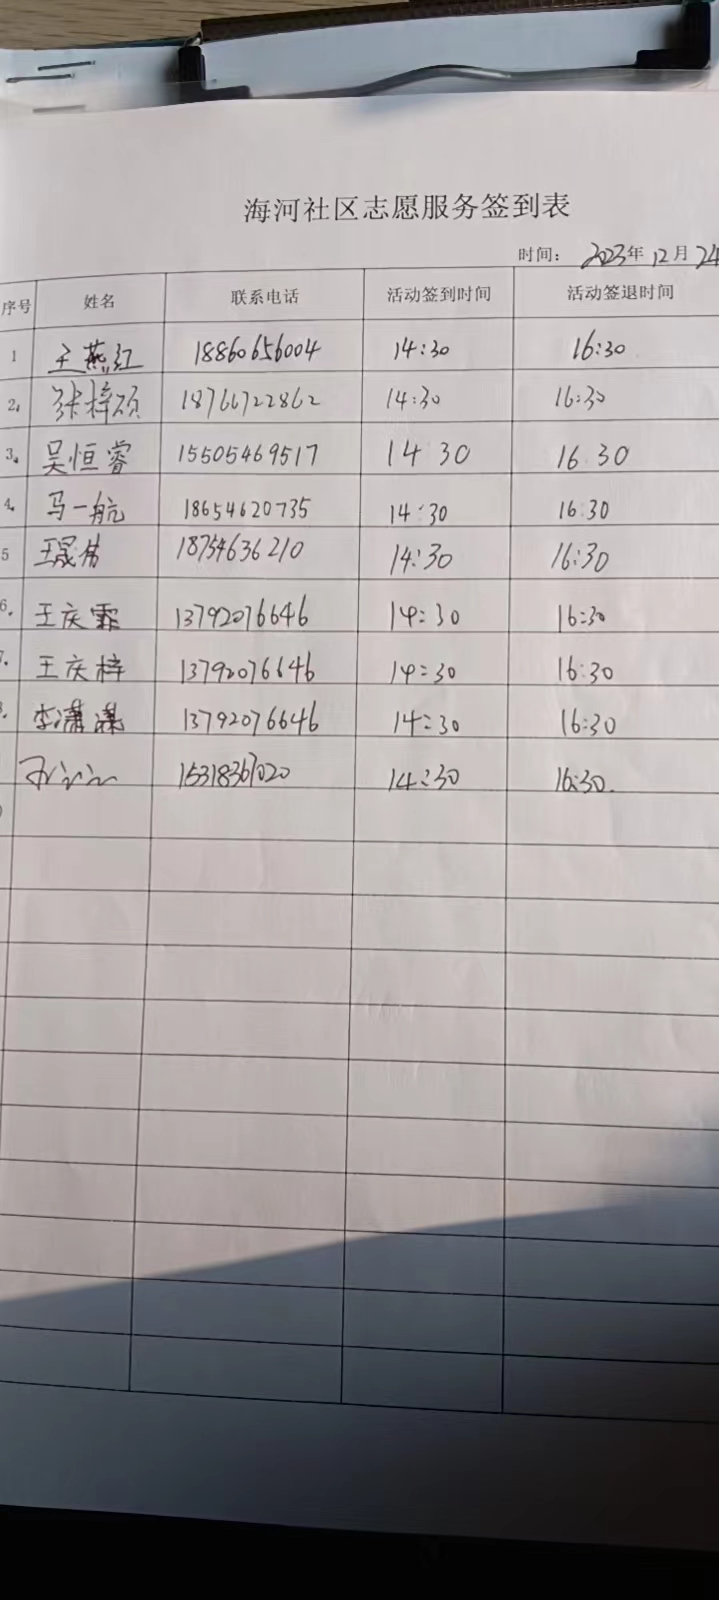 海河社区志愿服务签到表
时间: 2023年12月24
序号 姓名 联系电话 活动签到时间 活动签退时间
1 王燕红 18860656004 14:30 16:30
2. 张梓硕 18766722862 14:30 16:30
3. 吴恒睿 15505469517 14 30 16 30
4. 马一航 18654620735 14:30 16:30
5 王晟 18754636210 14:30 16:30
6. 王庆霏 13792076646 14:30 16:30
7. 王庆梓 13792076646 14:30 16:30
李潇潇 13792076646 14:30 16:30
15318367020 14:30 16:30.